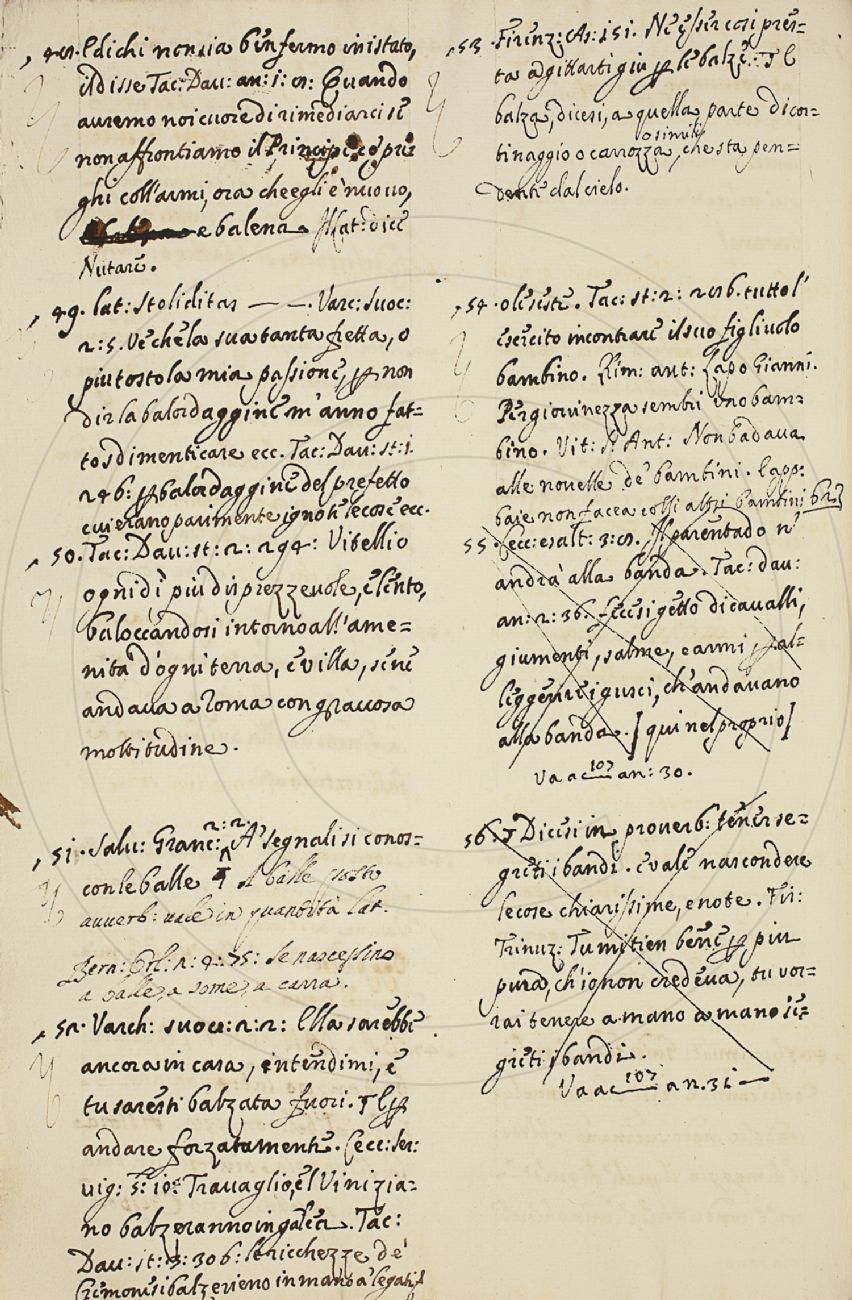 48. E dichi non sia ben fermo in istato,
il disse Tac: Dav: an: 1: 8: Quando
auremo noi cuore di rimediarci se
non affrontiamo il Principe, co' prie
ghi coll'armi, ora che egli è nuovo,
e balena. Il lat: dice
Nutare.
49. lat: stoliditas — —. Varc: suoc:
2: 5. Ve' che la sua tanta fretta, o
piu tosto la mia passione, per non
dir la balordaggine m'anno fat=
to sdimenticare ecc. Tac: Dav: st: 1.
246: per balordaggine del prefetto
cui erano parimente ignoti le cose ecc.
50. Tac: Dav: st: 2: 294: Vitellio
ogni dì piu disprezzevole, e lento,
baloccandosi intorno all'ame=
nità d'ogni terra, e villa, sene
andava a Roma con gravosa
moltitudine.
51. Salv: Granc: 2: 2. A' segnali si conos=
con le balle A balle posto
avverb: vale in quantità lat.
Bern: Orl: 2: 4: 75: Se nascessino
a balle, a some, a carra.
52. Varch: suoce: 2: 2: Ella sarebbe
ancora in casa, intendimi, e
tu saresti balzata fuori. T l per
andare forzatamente. Cecc: ser:
vig: 5: 10: Travaglio, e'l Vinizia=
no balzeranno in galea. Tac:
Dav: st: 3: 306: le ricchezze de'
Cremonesi balzerieno in mano a' legati
53. Firenz: As: 151. Ne esser cosi pres=
ta a gittarti giu per le balze. T l
balza, dicesi, a quella parte di cor=
tinaggio o carrozza, o simili che sta pen=
dente dal cielo.
54. oltre Tac: st: 2: 286. tutto l'
esercito incontrare il suo figliuolo
bambino. Rim: ant: Lapo Gianni.
Per giovinezza sembri uno bam=
bino. Vit: S: Ant: Non badava
alle novelle de' bambini. E app:
baie non facea cogli altri bambini
55. Cecc: esalt: 3: 8. Il parentado n'
andrà alla banda. Tac: dav:
an: 2: 36. fecesi getto di cavalli,
giumenti, salme, e armi, per al=
leggerire i gusci, ch'andavano
alla banda. [qui nel proprio]
Va a c 107 a n: 30.
56. T Dicesi in proverb: tener se=
greti i bandi. e vale nascondere
le cose chiarissime, e note. Fir:
Trinuz: Tu mi tien bene per piu
pura, ch'io non credeva, tu vor=
rai tenere a mano a mano se=
greti i bandi.
Va a c 107 a n. 31 —